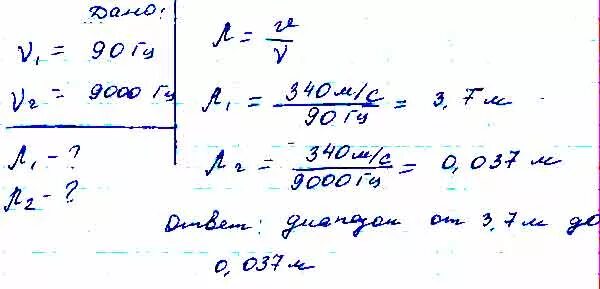 Дано:
ν₁ = 90 Гц
ν₂ = 9000 Гц
λ₁ - ?
λ₂ - ?
λ = v/ν
λ₁ = 340 м/с / 90 Гц = 3,7 м
λ₂ = 340 м/с / 9000 Гц = 0,037 м
Ответ: диапазон от 3,7 м до
0,037 м